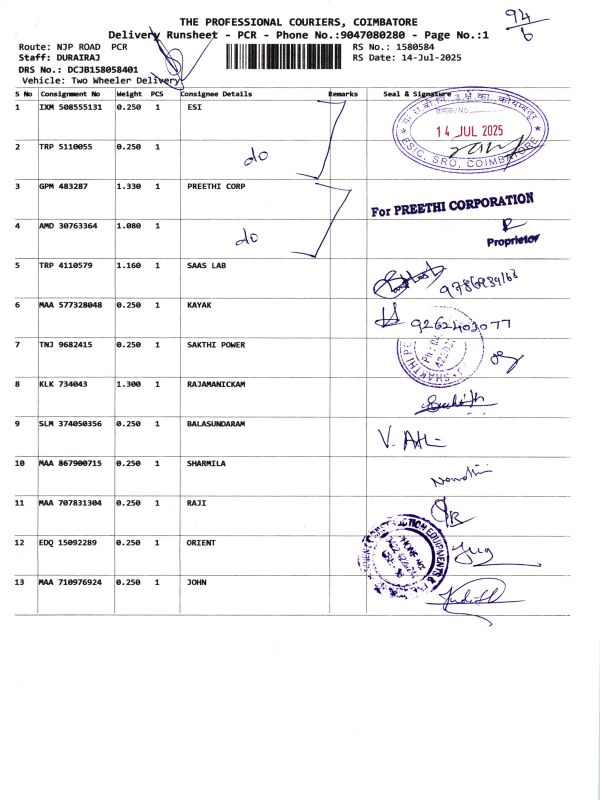 THE PROFESSIONAL COURIERS, COIMBATORE
94/6
Delivery Runsheet - PCR - Phone No.:9047080280 - Page No.:1
Route: NJP ROAD PCR
RS No.: 1580584
Staff: DURAIRAJ
RS Date: 14-Jul-2025
DRS No.: DCJB158058401
Vehicle: Two Wheeler Delivery
S No Consignment No Weight PCS Consignee Details Remarks Seal & Signature
1 IXM 508555131 0.250 1 ESI
14 JUL 2025
ESIC, SRO, COIMBATORE
2 TRP 5110055 0.250 1 do
3 GPM 483287 1.330 1 PREETHI CORP
For PREETHI CORPORATION
4 AMD 30763364 1.080 1 do
Proprietor
5 TRP 4110579 1.160 1 SAAS LAB
6 MAA 577328048 0.250 1 KAYAK 9262403077
7 TNJ 9682415 0.250 1 SAKTHI POWER
8 KLK 734043 1.300 1 RAJAMANICKAM
9 SLM 374050356 0.250 1 BALASUNDARAM
10 MAA 867900715 0.250 1 SHARMILA
11 MAA 707831304 0.250 1 RAJI
12 EDQ 15092289 0.250 1 ORIENT
13 MAA 710976924 0.250 1 JOHN